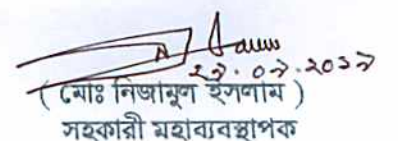 ২৯.০৯.২০১৯
( মোঃ নিজামুল ইসলাম )
সহকারী মহাব্যবস্থাপক